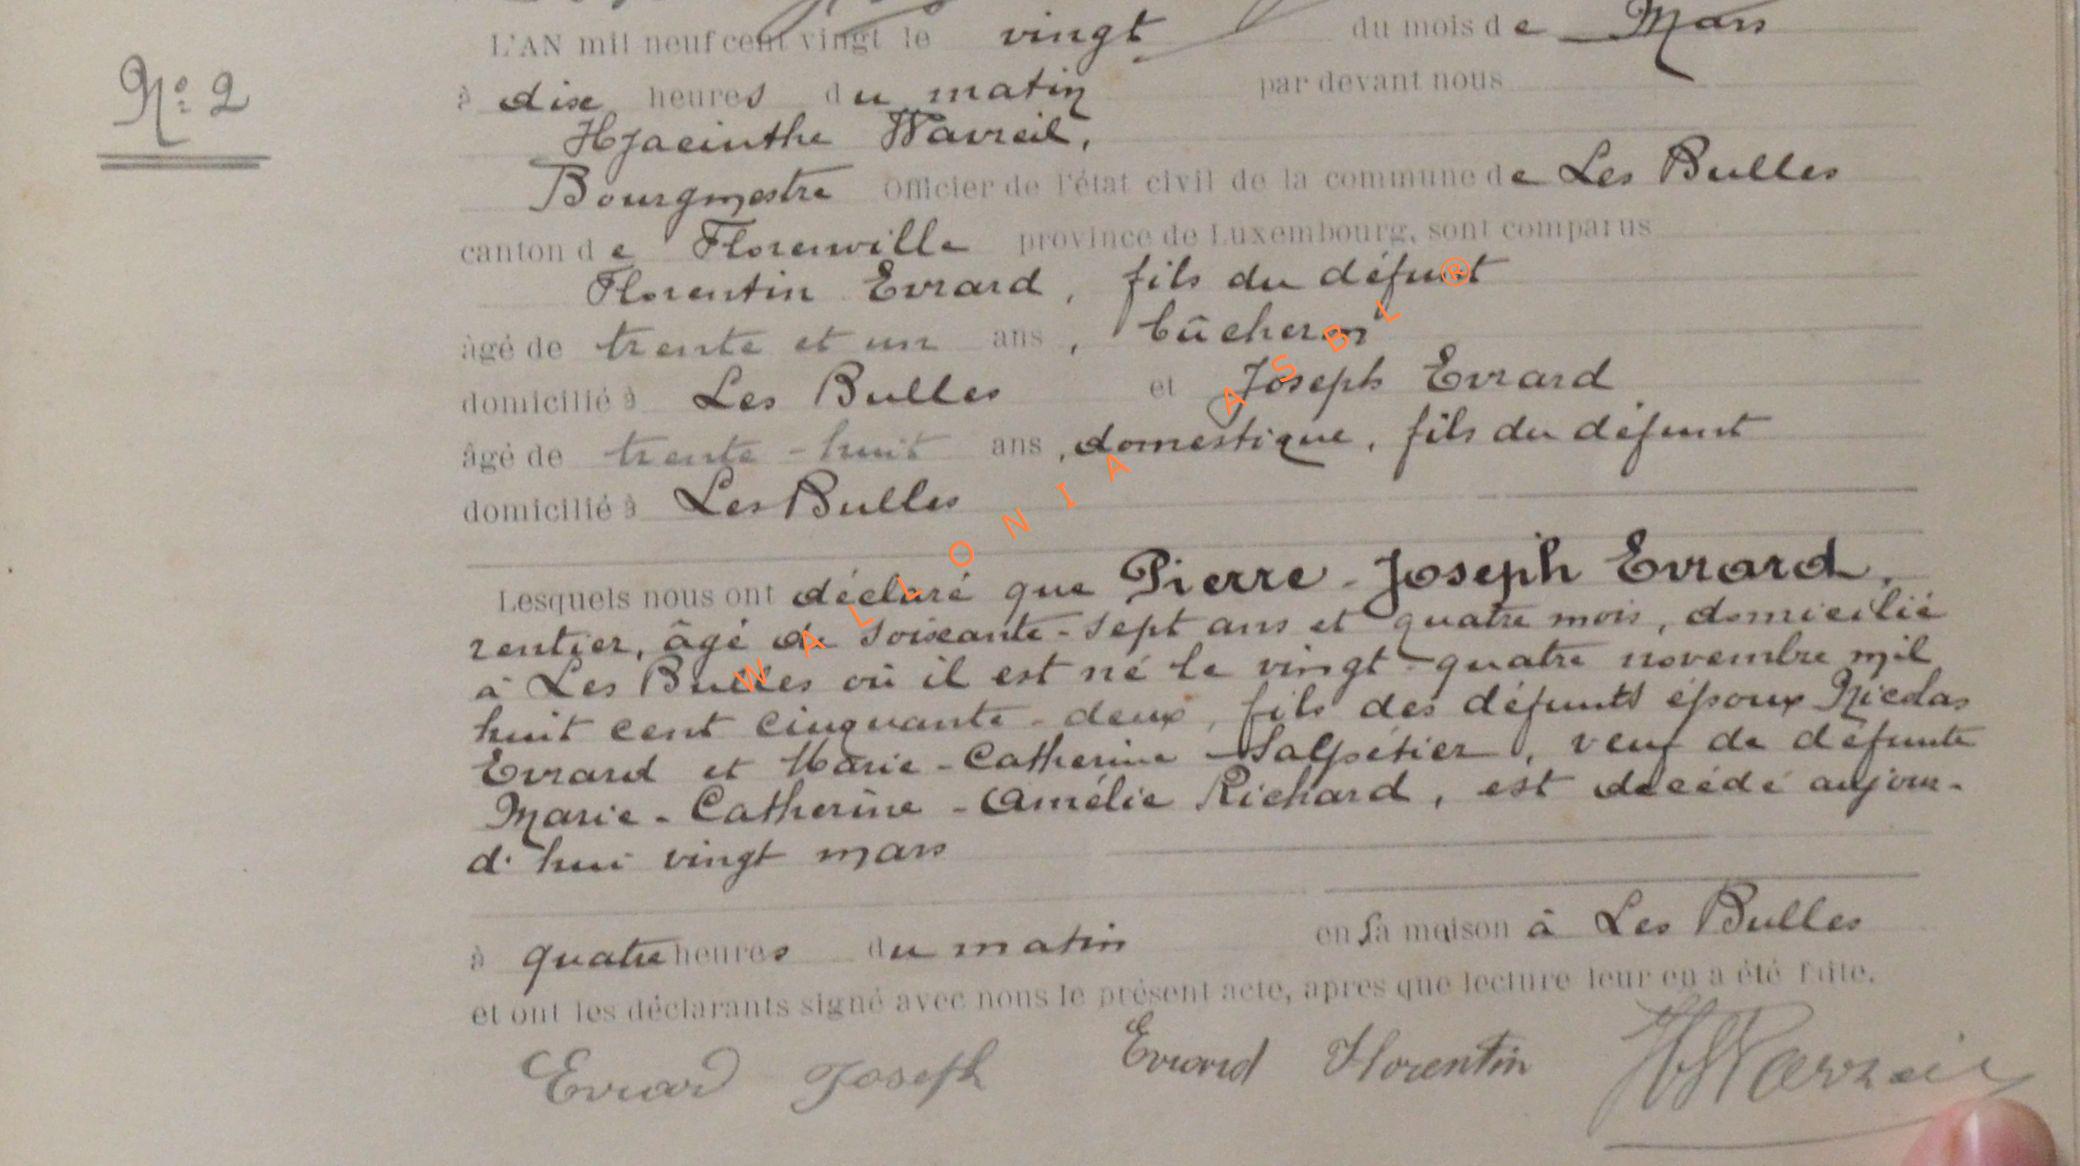 N° 2
L'AN mil neuf cent vingt le vingt du mois de Mars
à dix heures du matin par devant nous
Hyacinthe Wavreil,
Bourgmestre Officier de l'état civil de la commune de Les Bulles
canton de Florenville province de Luxembourg, sont comparus
Florentin Evrard, fils du défunt
âgé de trente et un ans, bûcheron
domicilié à Les Bulles et Joseph Evrard
âgé de trente-huit ans, domestique, fils du défunt
domicilié à Les Bulles
Lesquels nous ont déclaré que Pierre-Joseph Evrard,
rentier, âgé de soixante-sept ans et quatre mois, domicilié
à Les Bulles où il est né le vingt-quatre novembre mil
huit cent cinquante-deux, fils des défunts époux Nicolas
Evrard et Marie-Catherine Salpétier, veuf de défunte
Marie-Catherine-Amélie Richard, est décédé aujour-
d'hui vingt mars
à quatre heures du matin en sa maison à Les Bulles
et ont les déclarants signé avec nous le présent acte, après que lecture leur en a été faite.
Evrard Joseph Evrard Florentin H Wavreil
WALLONIA ASBL ®